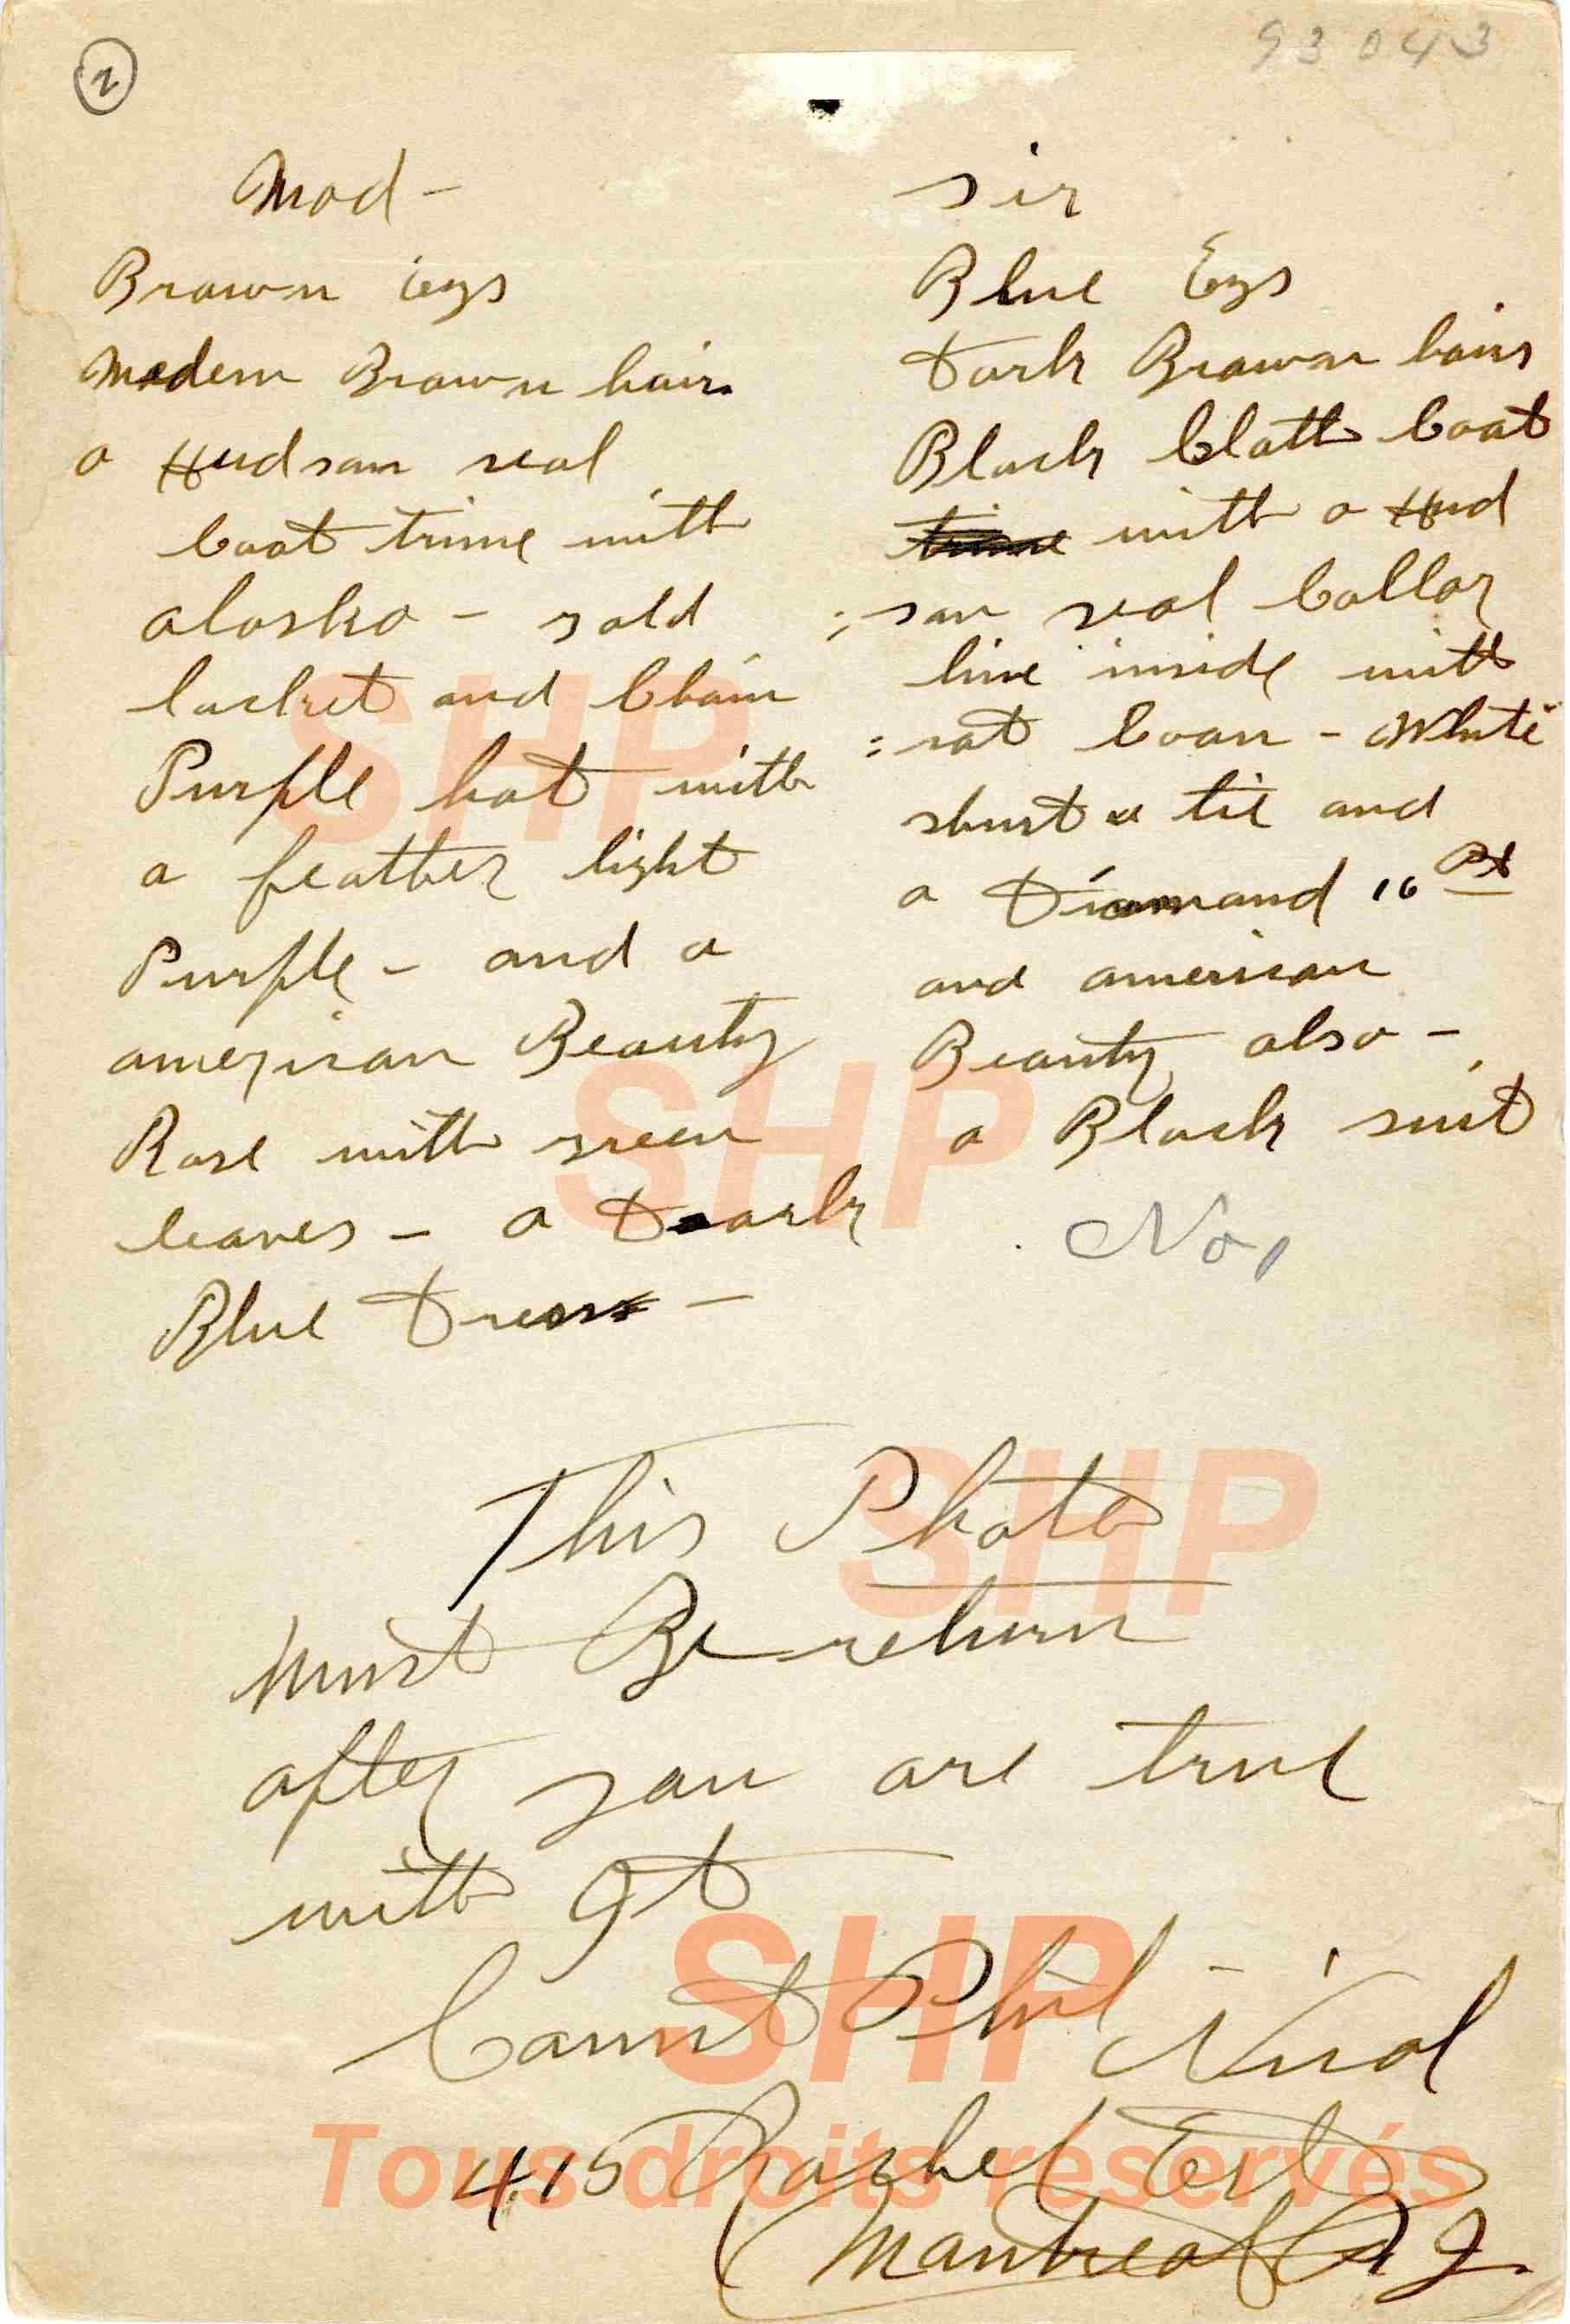 2
93043
Mad -
Brown Eys
Medem Brown hair
a Hudson seal
Coat trime with
alaska - gold
locket and Chain
Purple hat with
a feather light
Purple - and a
american Beauty
Rose with green
leaves - a Dark
Blue Dress -
sir
Blue Eys
Dark Brown hairs
Black Cloth Coat
trime with a Hud
: son seal Collar
line inside with
: rat Coon - White
shurt & tie and
a Diamand 16 Pt
and american
Beauty also -
a Black suit
No,
This Photo
must Be return
after you are true
with It
Count Phil - Nicol
415 Rachel Est
Montreal P Q.
SHP
SHP
SHP
SHP
Tous droits réservés